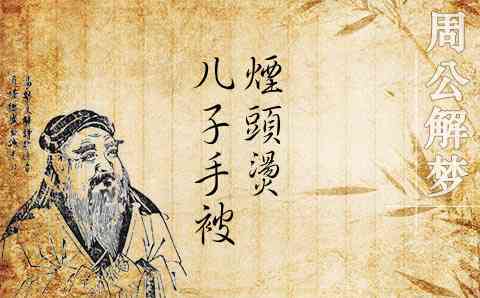 周公解梦
儿子手被
煙頭燙